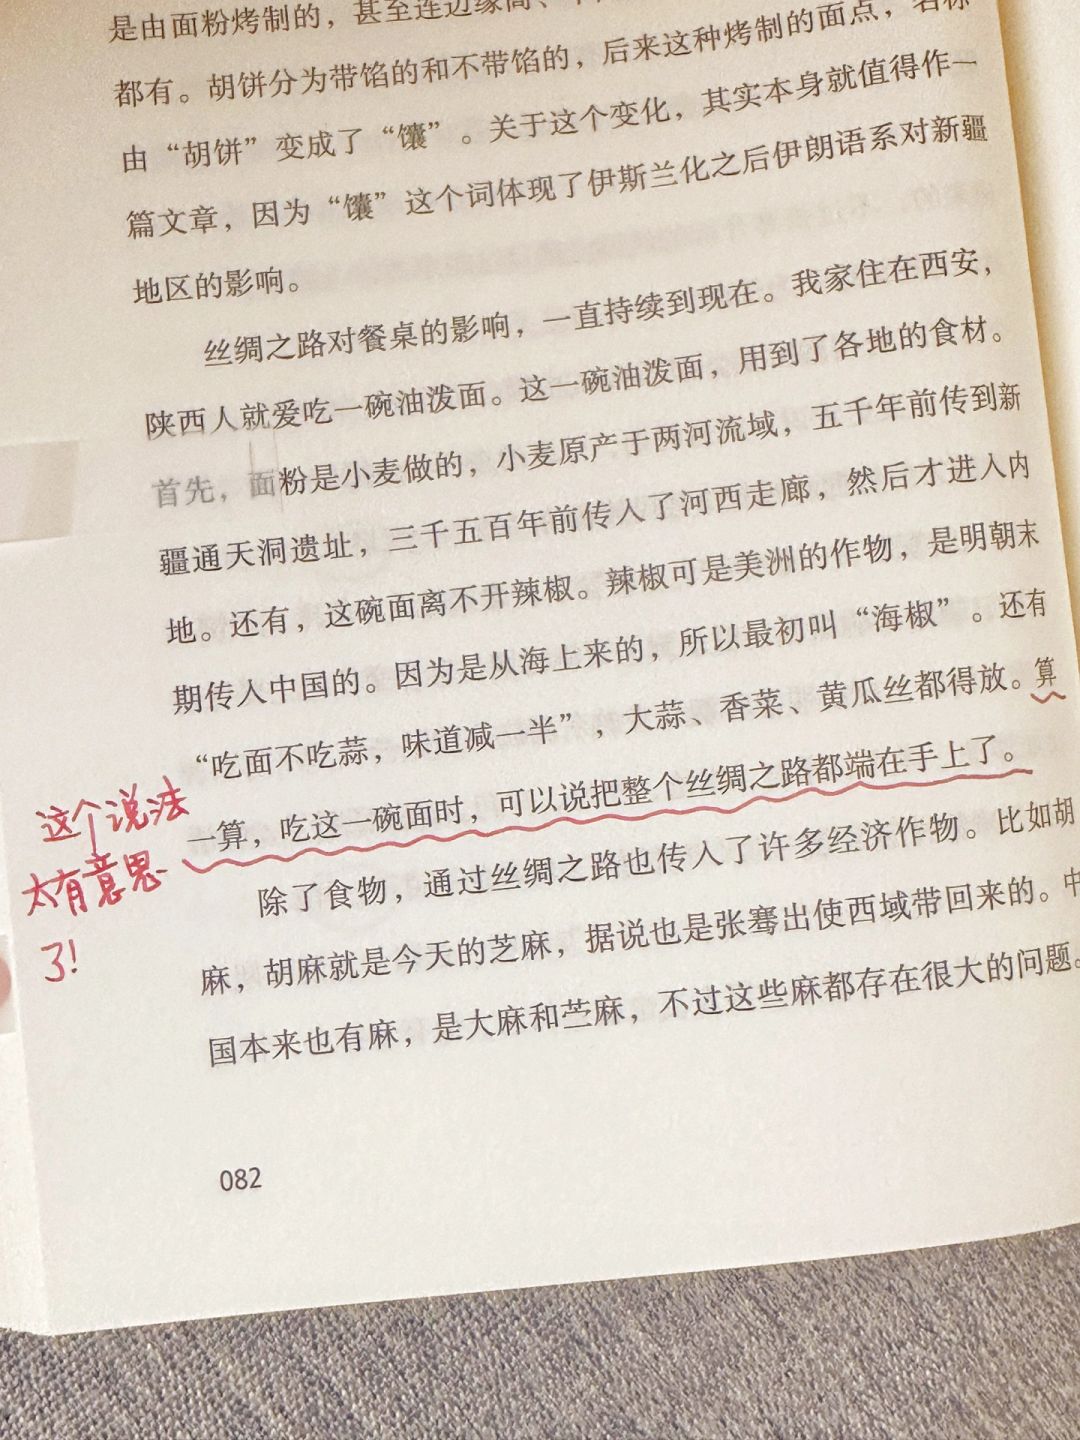 是由面粉烤制的，甚至连边缘高、
都有。胡饼分为带馅的和不带馅的，后来这种烤制的面点，名称
由“胡饼”变成了“馕”。关于这个变化，其实本身就值得作一
篇文章，因为“馕”这个词体现了伊斯兰化之后伊朗语系对新疆
地区的影响。
丝绸之路对餐桌的影响，一直持续到现在。我家住在西安，
陕西人就爱吃一碗油泼面。这一碗油泼面，用到了各地的食材。
首先，面粉是小麦做的，小麦原产于两河流域，五千年前传到新
疆通天洞遗址，三千五百年前传入了河西走廊，然后才进入内
地。还有，这碗面离不开辣椒。辣椒可是美洲的作物，是明朝末
期传入中国的。因为是从海上来的，所以最初叫“海椒”。还有
“吃面不吃蒜，味道减一半”，大蒜、香菜、黄瓜丝都得放。算
一算，吃这一碗面时，可以说把整个丝绸之路都端在手上了。
这个说法
太有意思
了！
除了食物，通过丝绸之路也传入了许多经济作物。比如胡
麻，胡麻就是今天的芝麻，据说也是张骞出使西域带回来的。中
国本来也有麻，是大麻和苎麻，不过这些麻都存在很大的问题。
082